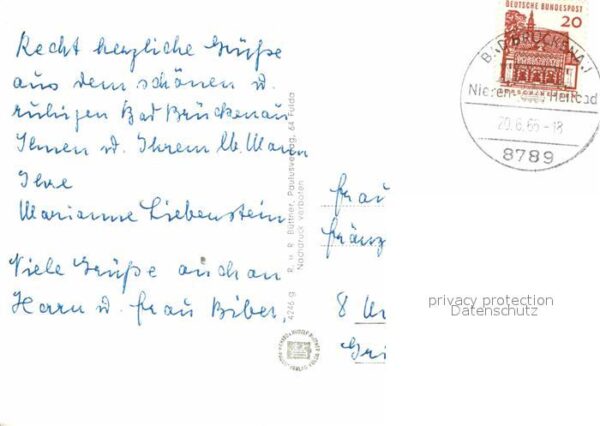 Recht herzliche Grüße
aus dem schönen u.
ruhigen Bad Brückenau
Ihnen u. Ihrem lb. Mann
Ihre
Marianne Liebenstein
Viele Grüße auch an
Herrn u. Frau Biber.
4246 g R. u. R. Büttner, Paulusverlag, 64 Fulda
Nachdruck verboten
DEUTSCHE BUNDESPOST
20
BAD BRÜCKENAU
Nieren- Heilbad
20.6.65-18
8789
Frau
Fränz
8
Gri
privacy protection
Datenschutz